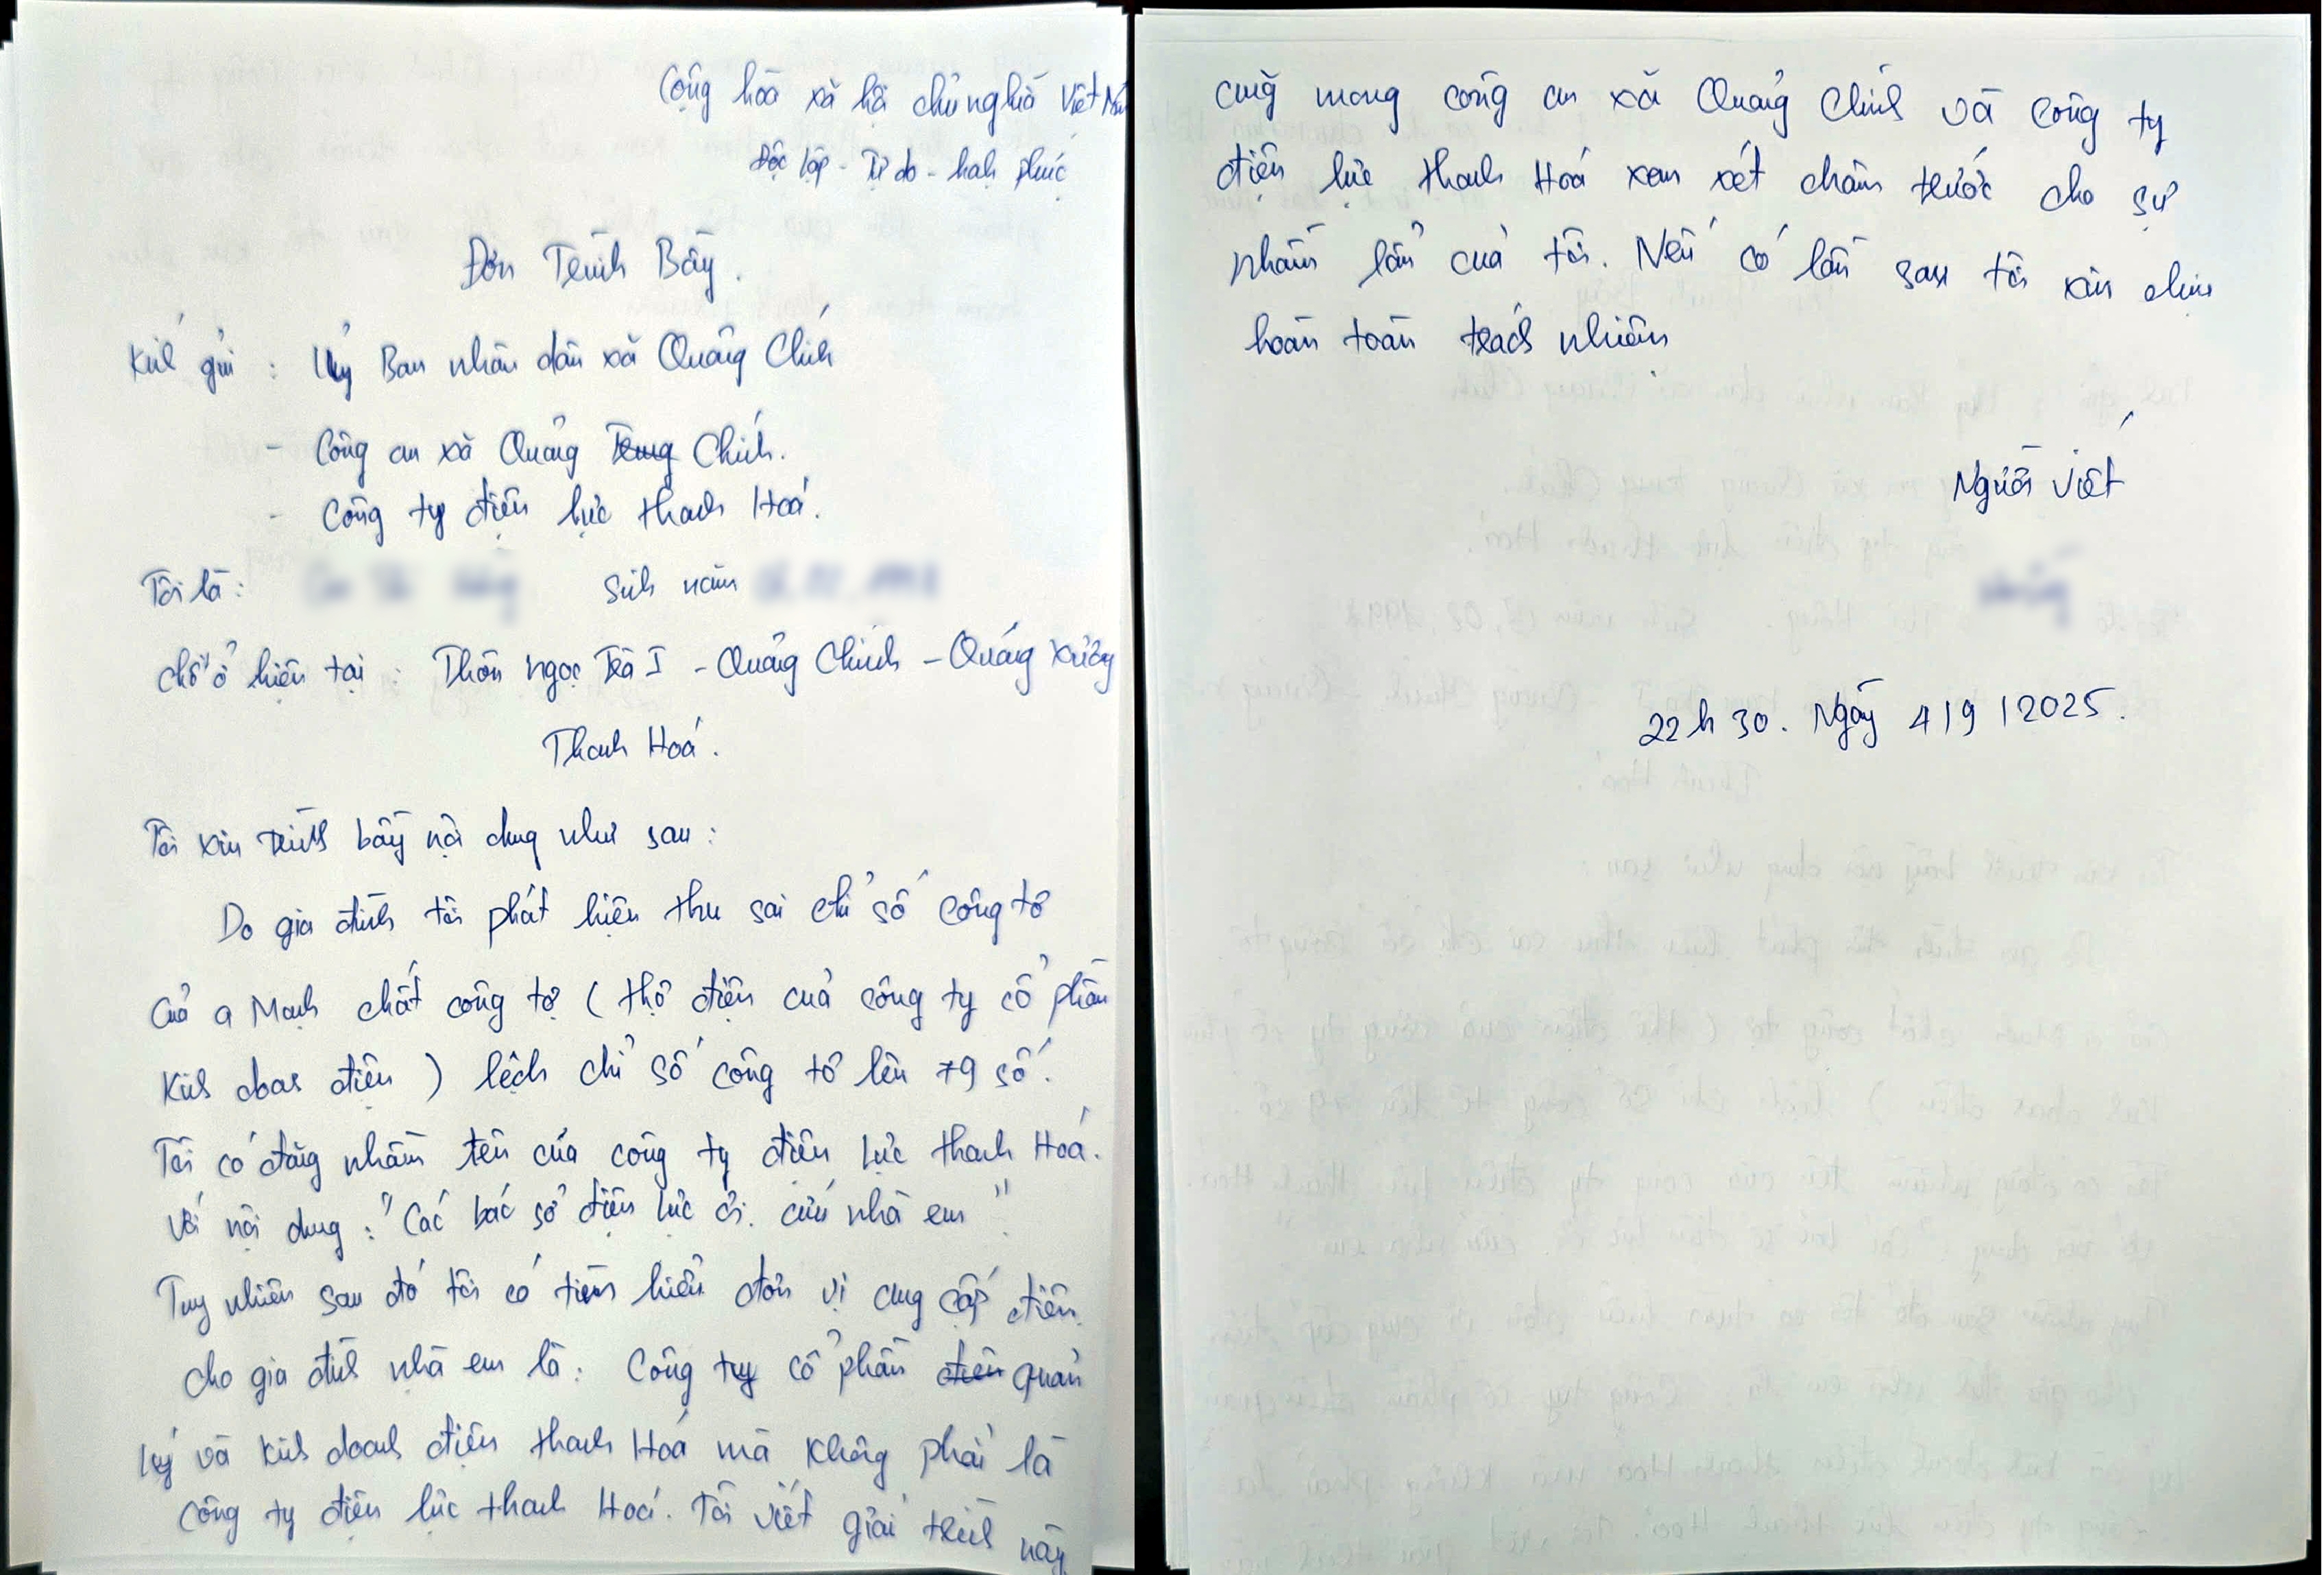 Cộng hòa xã hội chủ nghĩa Việt Nam
Độc lập - Tự do - hạnh phúc
Đơn Trình Bầy.
Kính gửi : Uỷ Ban nhân dân xã Quảng Chính
- Công an xã Quảng Trung Chính.
- Công ty điện lực thanh Hoá.
Tôi là: sinh năm
chỗ ở hiện tại : Thôn ngọc Trà I - Quảng Chính - Quảng Xương
Thanh Hoá.
Tôi xin trình bầy nội dung như sau :
Do gia đình tôi phát hiện thu sai chỉ số công tơ
Của a Mạnh chốt công tơ ( thợ điện của công ty cổ phần
Kinh doanh điện ) lệch chỉ số công tơ lên 79 số.
Tôi có đăng nhầm tên của công ty điện lực thanh Hoá.
Với nội dung : "Các bác sở điện lực ơi. cứu nhà em"
Tuy nhiên sau đó tôi có tìm hiểu đơn vị cung cấp điện
cho gia đình nhà em là: Công ty cổ phần điện quản
lý và kinh doanh điện thanh Hoá mà không phải là
Công ty điện lực thanh Hoá. Tôi viết giải trình này
cũng mong công an xã Quảng Chính và công ty
điện lực thanh Hoá xem xét châm trước cho sự
nhầm lẫn của tôi. Nếu có lần sau tôi xin chịu
hoàn toàn trách nhiệm
Người viết
22h 30. Ngày 4/9/2025.